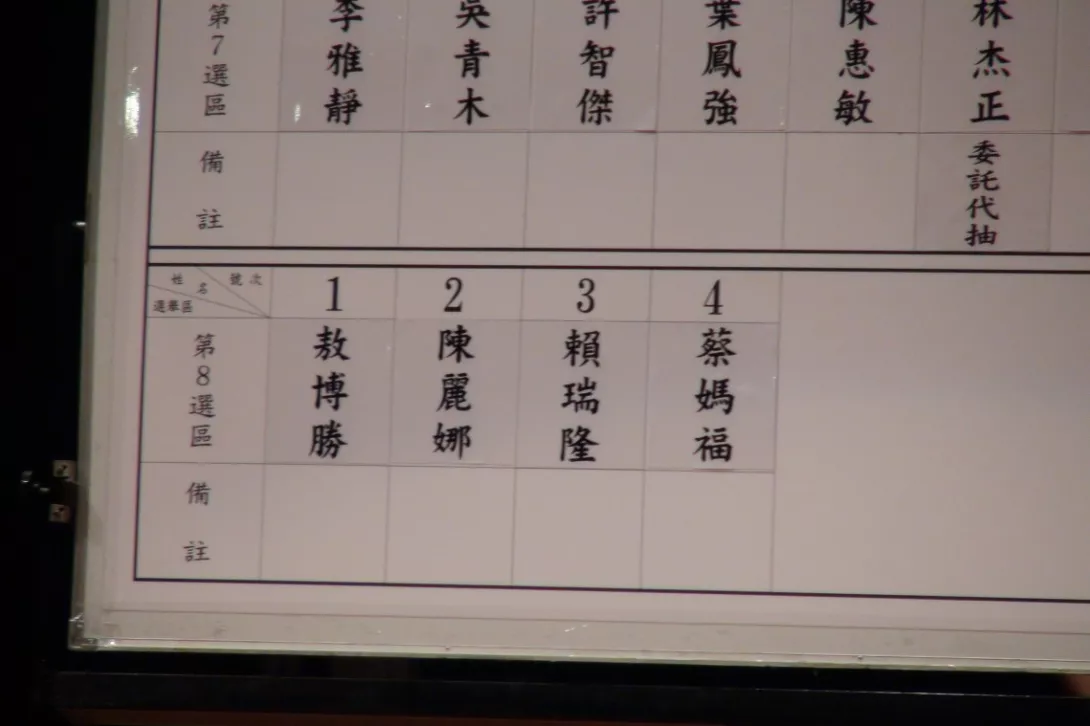 第7選區 李雅靜 吳青木 許智傑 葉鳳強 陳惠敏 林杰正
備註 委託代抽
姓名 號次 選舉區 1 2 3 4
第8選區 敖博勝 陳麗娜 賴瑞隆 蔡媽福
備註